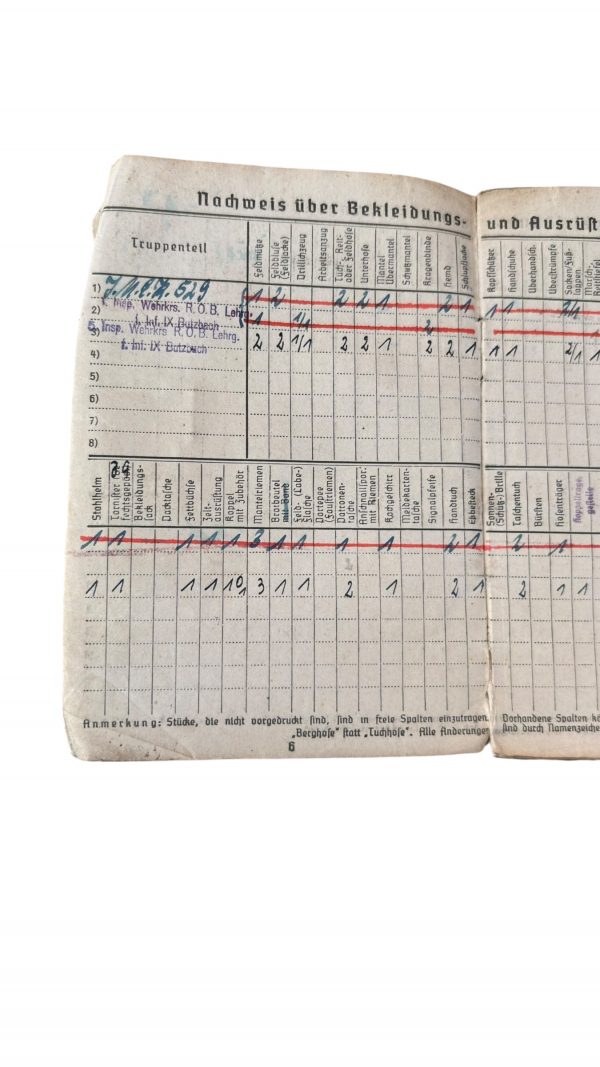 Nachweis über Bekleidungs- und Ausrüst
Truppenteil
Feldmütze
Feldbluse (Feldjacke)
Drillichzeug
Arbeitsanzug
Tuch-, Reit- oder Feldhose
Unterhose
Mantel Übermantel
Schutzmantel
Kragenbinde
Hemd
Schlupfjacke
Kopfschützer
Handschuhe
Überhandsch.
Überstrümpfe
Socken/Fuß-lappen
Marsch-
1) 529 1 2 2 2 1 2 1 1 1 2/1
1. Insp. Wehrkrs. R. O. B. Lehrg.
2) f. Inf. IX Butzbach 1 1/1 2
5. Insp. Wehrkrs. R. O. B. Lehrg.
3) f. Inf. IX Butzbach 2 2 1/1 2 2 1 2 2 1 1 1 2/1 1
4)
5)
6)
7)
8)
Stahlhelm
Tornister
fechtsgepäck
Bekleidungs-sack
Packtasche
Fettbüchse
Zelt-ausrüstung
Koppel mit Zubehör
Mantelriemen
Brotbeutel mit Band
Feld- (Labe-) Flasche
Portepee (Faustriemen)
Patronen-tasche
Anschnallspor. mit Riemen
Kochgeschirr
Meldekarten-tasche
Signalpfeife
Handtuch
Eßbesteck
Sonnen- (Schutz-) Brille
Taschentuch
Bürsten
Hosenträger
Koppeltrage-gestelle
1 1 1 1 1 3 1 1 1 1 2 1 2 1
1 1 1 1 1 3 1 1 2 1 2 1 2 1 1
Anmerkung: Stücke, die nicht vorgedruckt sind, sind in freie Spalten einzutragen. Vorhandene Spalten kö
„Berghose“ statt „Tuchhose“. Alle Änderungen sind durch Namenszeiche
6